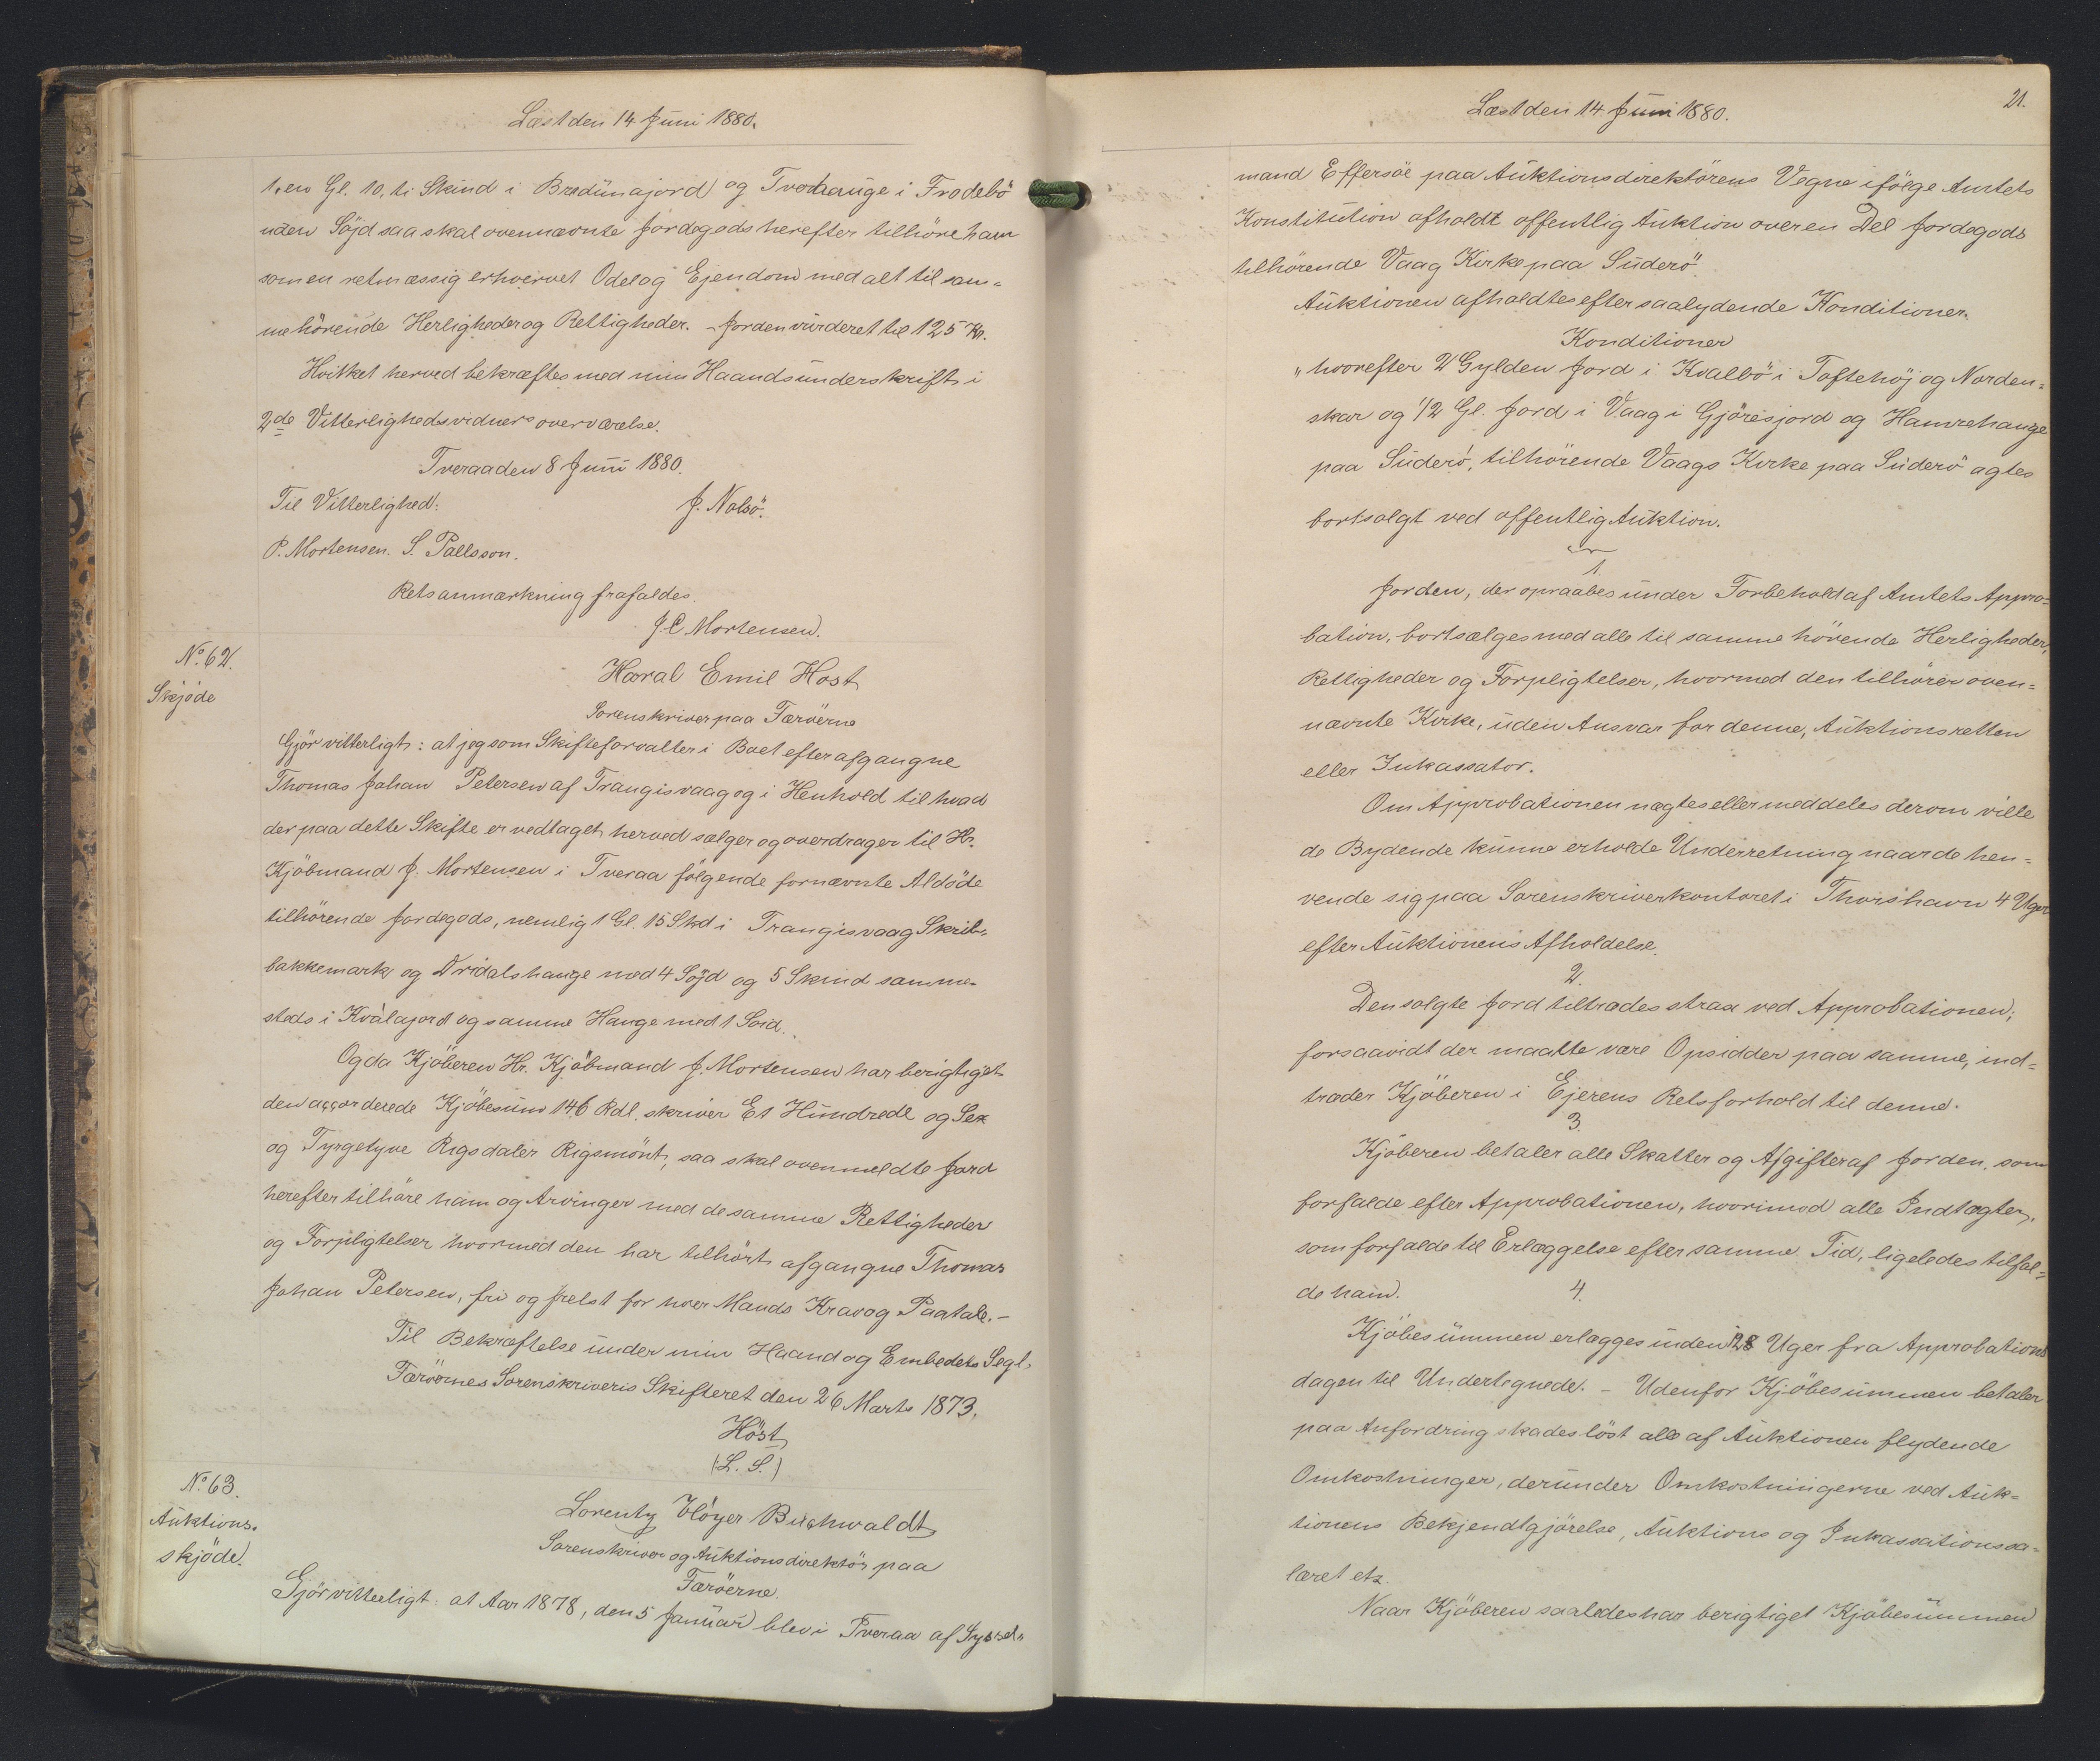 Læst den 14 Juni 1880.
1, en Gl. 10, ti Skind i Bredünajord og Tvorhauge i Frodebö
uden Söjd saa skal ovennævnte Jordegods herefter tilhöre ham
som en retmæssig erhvervet Odel og Ejendom med alt til sam-
me hörende Herligheder og Rettigheder. - Jorden vurderet til 125 Kr.
Hvilket herved bekræftes med min Haandsunderskrift i
2de Vitterlighedsvidners overværelse.
Tveraa den 8 Juni 1880.
Til Vitterlighed: J. Nolsö.
P. Mortensen. S. Pallsson.
Retsanmærkning frafaldes.
J. C Mortensen.
No. 62.
Skjöde
Haral Emil Høst
Sorenskriver paa Færöerne
Gjör vitterligt: at jeg som Skifteforvalter i Boet efter afgangne
Thomas Johan Petersen af Trangisvaag og i Henhold til hvad
der paa dette Skifte er vedtaget herved sælger og overdrager til Hr.
Kjöbmand J. Mortensen i Tveraa fölgende fornævnte Afdöde
tilhörende Jordegods, nemlig 1 Gl. 15 Skd i Trangisvaag Skrib-
bakkemark og Dridalshauge med 4 Söjd og 5 Skind samme-
steds i Kválajord og samme Hauge med 1 Soid.
Og da Kjöberen Hr. Kjöbmand J. Mortensen har berigtiget
den accorderede Kjöbesum 146 Rdl. skriver Et Hundrede og Sex
og Fyrgetyve Rigsdaler Rigsmönt, saa skal ovenmeldte Jord
herefter tilhöre ham og Arvinger med de samme Rettigheder
og Forpligtelser hvormed den har tilhört afgangne Thomas
Johan Petersen, fri og frelst for hver Mands Krav og Paatale. -
Til Bekræftelse under min Haand og Embedets Segl.
Færöernes Sorenskriveris Skifteret den 26 Marts 1873.
Höst
(L. S.)
No. 63.
Auktions-
skjöde.
Lorentz Höyer Buchwaldt
Sorenskriver og Auktionsdirektör paa
Færöerne.
Gjör vitterligt: at Aar 1878, den 5 Januar blev i Tveraa af Syssel-
21.
Læst den 14 Juni 1880.
mand Effersöe paa Auktionsdirektörens Vegne ifölge Amtets
Konstitution afholdt offentlig Auktion over en Del Jordegods
tilhörende Vaag Kirke paa Suderö.
Auktionen afholdtes efter saalydende Konditioner.
Konditioner
"hvorefter 2 Gylden Jord i Kvalbö i Toftehöj og Norden-
skar og 1/2 Gl. Jord i Vaag i Gjöresjord og Hamrehauge
paa Suderö, tilhörende Vaags Kirke paa Suderö agtes
bortsolgt ved offentlig Auktion.
1.
Jorden, der opraabes under Forbehold af Amtets Appro-
bation, bortsælges med alle til samme hörende Herligheder,
Rettigheder og Forpligtelser, hvormed den tilhörer oven-
nævnte Kirke, uden Ansvar for denne, Auktionsretten
eller Inkassator.
Om Approbationen nægtes eller meddeles derom ville
de Bydende kunne erholde Underretning naar de hen-
vende sig paa Sorenskriverkontoret i Thorshavn 4 Uger
efter Auktionens Afholdelse.
2.
Den solgte Jord tiltrædes strax ved Approbationen;
forsaavidt der maatte være Opsidder paa samme, ind-
træder Kjöberen i Ejerens Retsforhold til denne.
3.
Kjöberen betaler alle Skatter og Afgifter af Jorden, som
forfalde efter Approbationen, hvorimod alle Indtægter,
som forfalde til Erlæggelse efter samme Tid, ligeledes tilfal-
de ham.
4.
Kjöbesummen erlægges inden Uger fra Approbations
dagen til Undertegnede. - Udenfor Kjöbesummen betaler
paa Anfordring skadeslöst alle af Auktionen flydende
Omkostninger, derunder Omkostningerne ved Auk-
tionens Bekjendtgjörelse, Auktions og Inkassationssa-
læret etz.
Naar Kjöberen saaledes har berigtiget Kjöbesummen